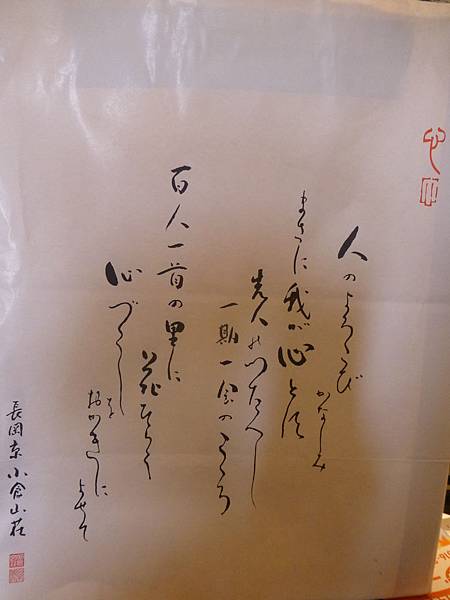 人のよろこび
かなしみ
まさに我が心とす
先人のつたへし
一期一会のこころ
百人一首の里に
花
心づくし
を
おかきに
よせて
長岡京小倉山荘